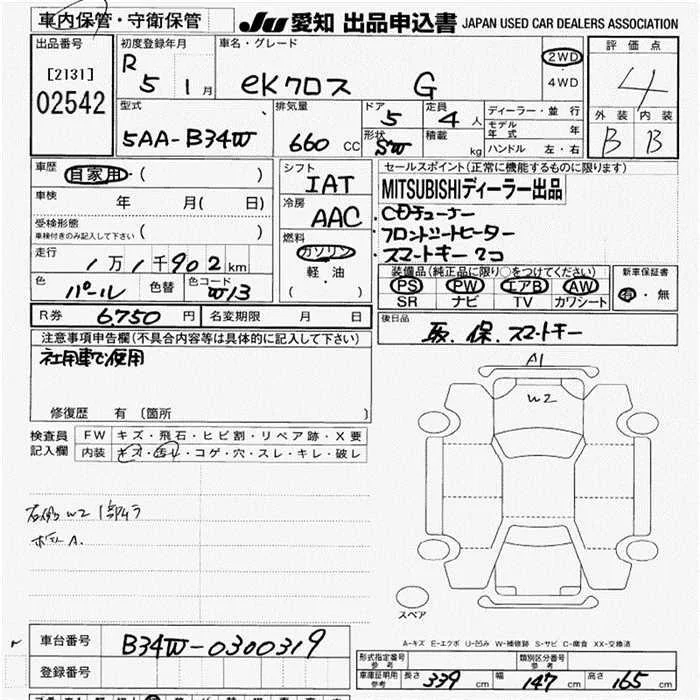 車内保管・守衛保管
JU 愛知 出品申込書 JAPAN USED CAR DEALERS ASSOCIATION
出品番号
[2131]
02542
初度登録年月
R 5 1月
車名・グレード
eKクロス G
2WD
・
4WD
評価点
4
外装 内装
B B
型式
5AA-B34W
排気量
660 CC
ドア
5
形状
SW
定員
4人
積載
kg
ディーラー・並行
モデル年式 年
ハンドル 左・右
車歴
自家用・( )
車検
年 月( 日)
受検形態
車検付きのみ記入して下さい ( )
走行
1万1千902km
色
パール
色替
色コード
W13
シフト
IAT
冷房
AAC
燃料
ガソリン
軽・油
( )
セールスポイント(正常に機能するものに限ります)
MITSUBISHIディーラー出品
・CDチューナー
・フロントシートヒーター
・スマートキー2コ
装備品(純正品に限り○をつけてください)
PS PW エアB AW
SR ナビ TV カワシート
新車保証書
有・無
R券 6,750円
名変期限 月 日
後日品
取. 保. スマートキー
注意事項申告欄(不具合内容等は具体的に記入して下さい)
社用車で使用
修復歴 有 〔箇所 〕
検査員
記入欄
FW キズ・飛石・ヒビ割・リペア跡・X要
内装 キズ・汚れ・コゲ・穴・スレ・キレ・破レ
W2 1部ムラ
A.
A1
W2
スペア
A-キズ E-エクボ U-凹み W-補修跡 S-サビ C-腐食 XX-交換済
車台番号 B34W-0300319
登録番号
形式指定番号
参考
類別区分番号
参考
車庫証明用
参考
長さ 339 cm 幅 147 cm 高さ 165 cm